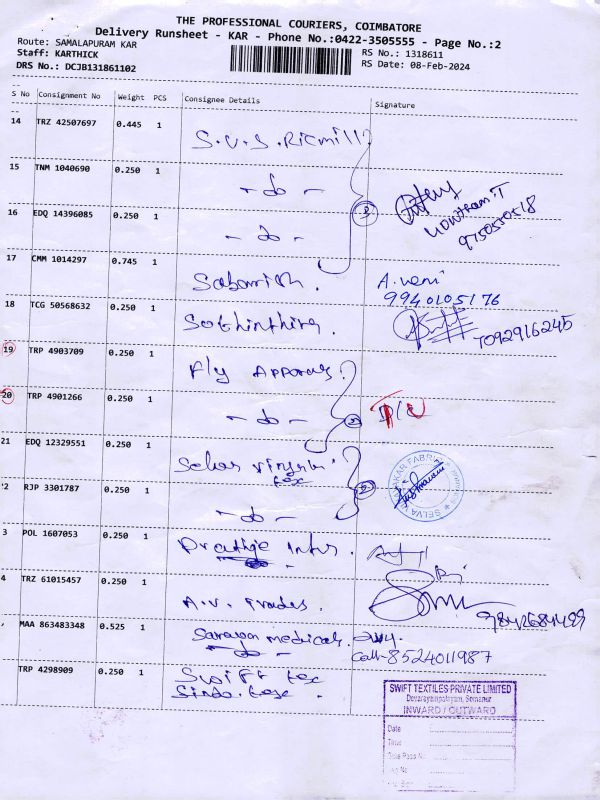 THE PROFESSIONAL COURIERS, COIMBATORE
Delivery Runsheet - KAR - Phone No.:0422-3505555 - Page No.:2
Route: SAMALAPURAM KAR
RS No.: 1318611
Staff: KARTHICK
RS Date: 08-Feb-2024
DRS No.: DCJB131861102
S No Consignment No Weight PCS Consignee Details Signature
14 TRZ 42507697 0.445 1 S.V.S. Ricmill
15 TNM 1040690 0.250 1 - do -
16 EDQ 14396085 0.250 1 - do -
Gowtham T
9750550518
17 CMM 1014297 0.745 1 Sabarish. A. veni
9940105176
18 TCG 50568632 0.250 1 7092916245
19 TRP 4903709 0.250 1 Fly Apparals
20 TRP 4901266 0.250 1 - do - D/C
21 EDQ 12329551 0.250 1 tex
2 RJP 3301787 0.250 1 - do -
3 POL 1607053 0.250 1
4 TRZ 61015457 0.250 1 A.V. Trades. 9842684489
MAA 863483348 0.525 1 Saravan medicals.
Call-8524011987
TRP 4298909 0.250 1 Swift tex
SWIFT TEXTILES PRIVATE LIMITED
INWARD / OUTWARD
Date
Time
Gate Pass No